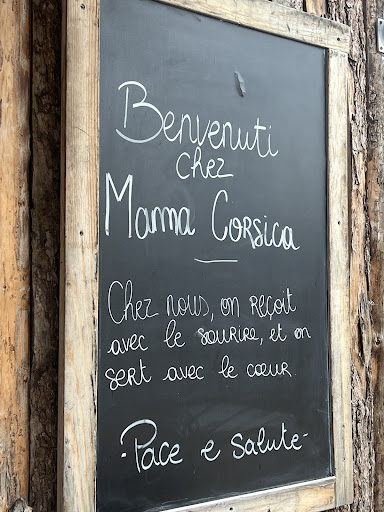 Benvenuti
chez
Mama Corsica
Chez nous, on reçoit
avec le sourire, et on
sert avec le cœur.
-Pace e salute-